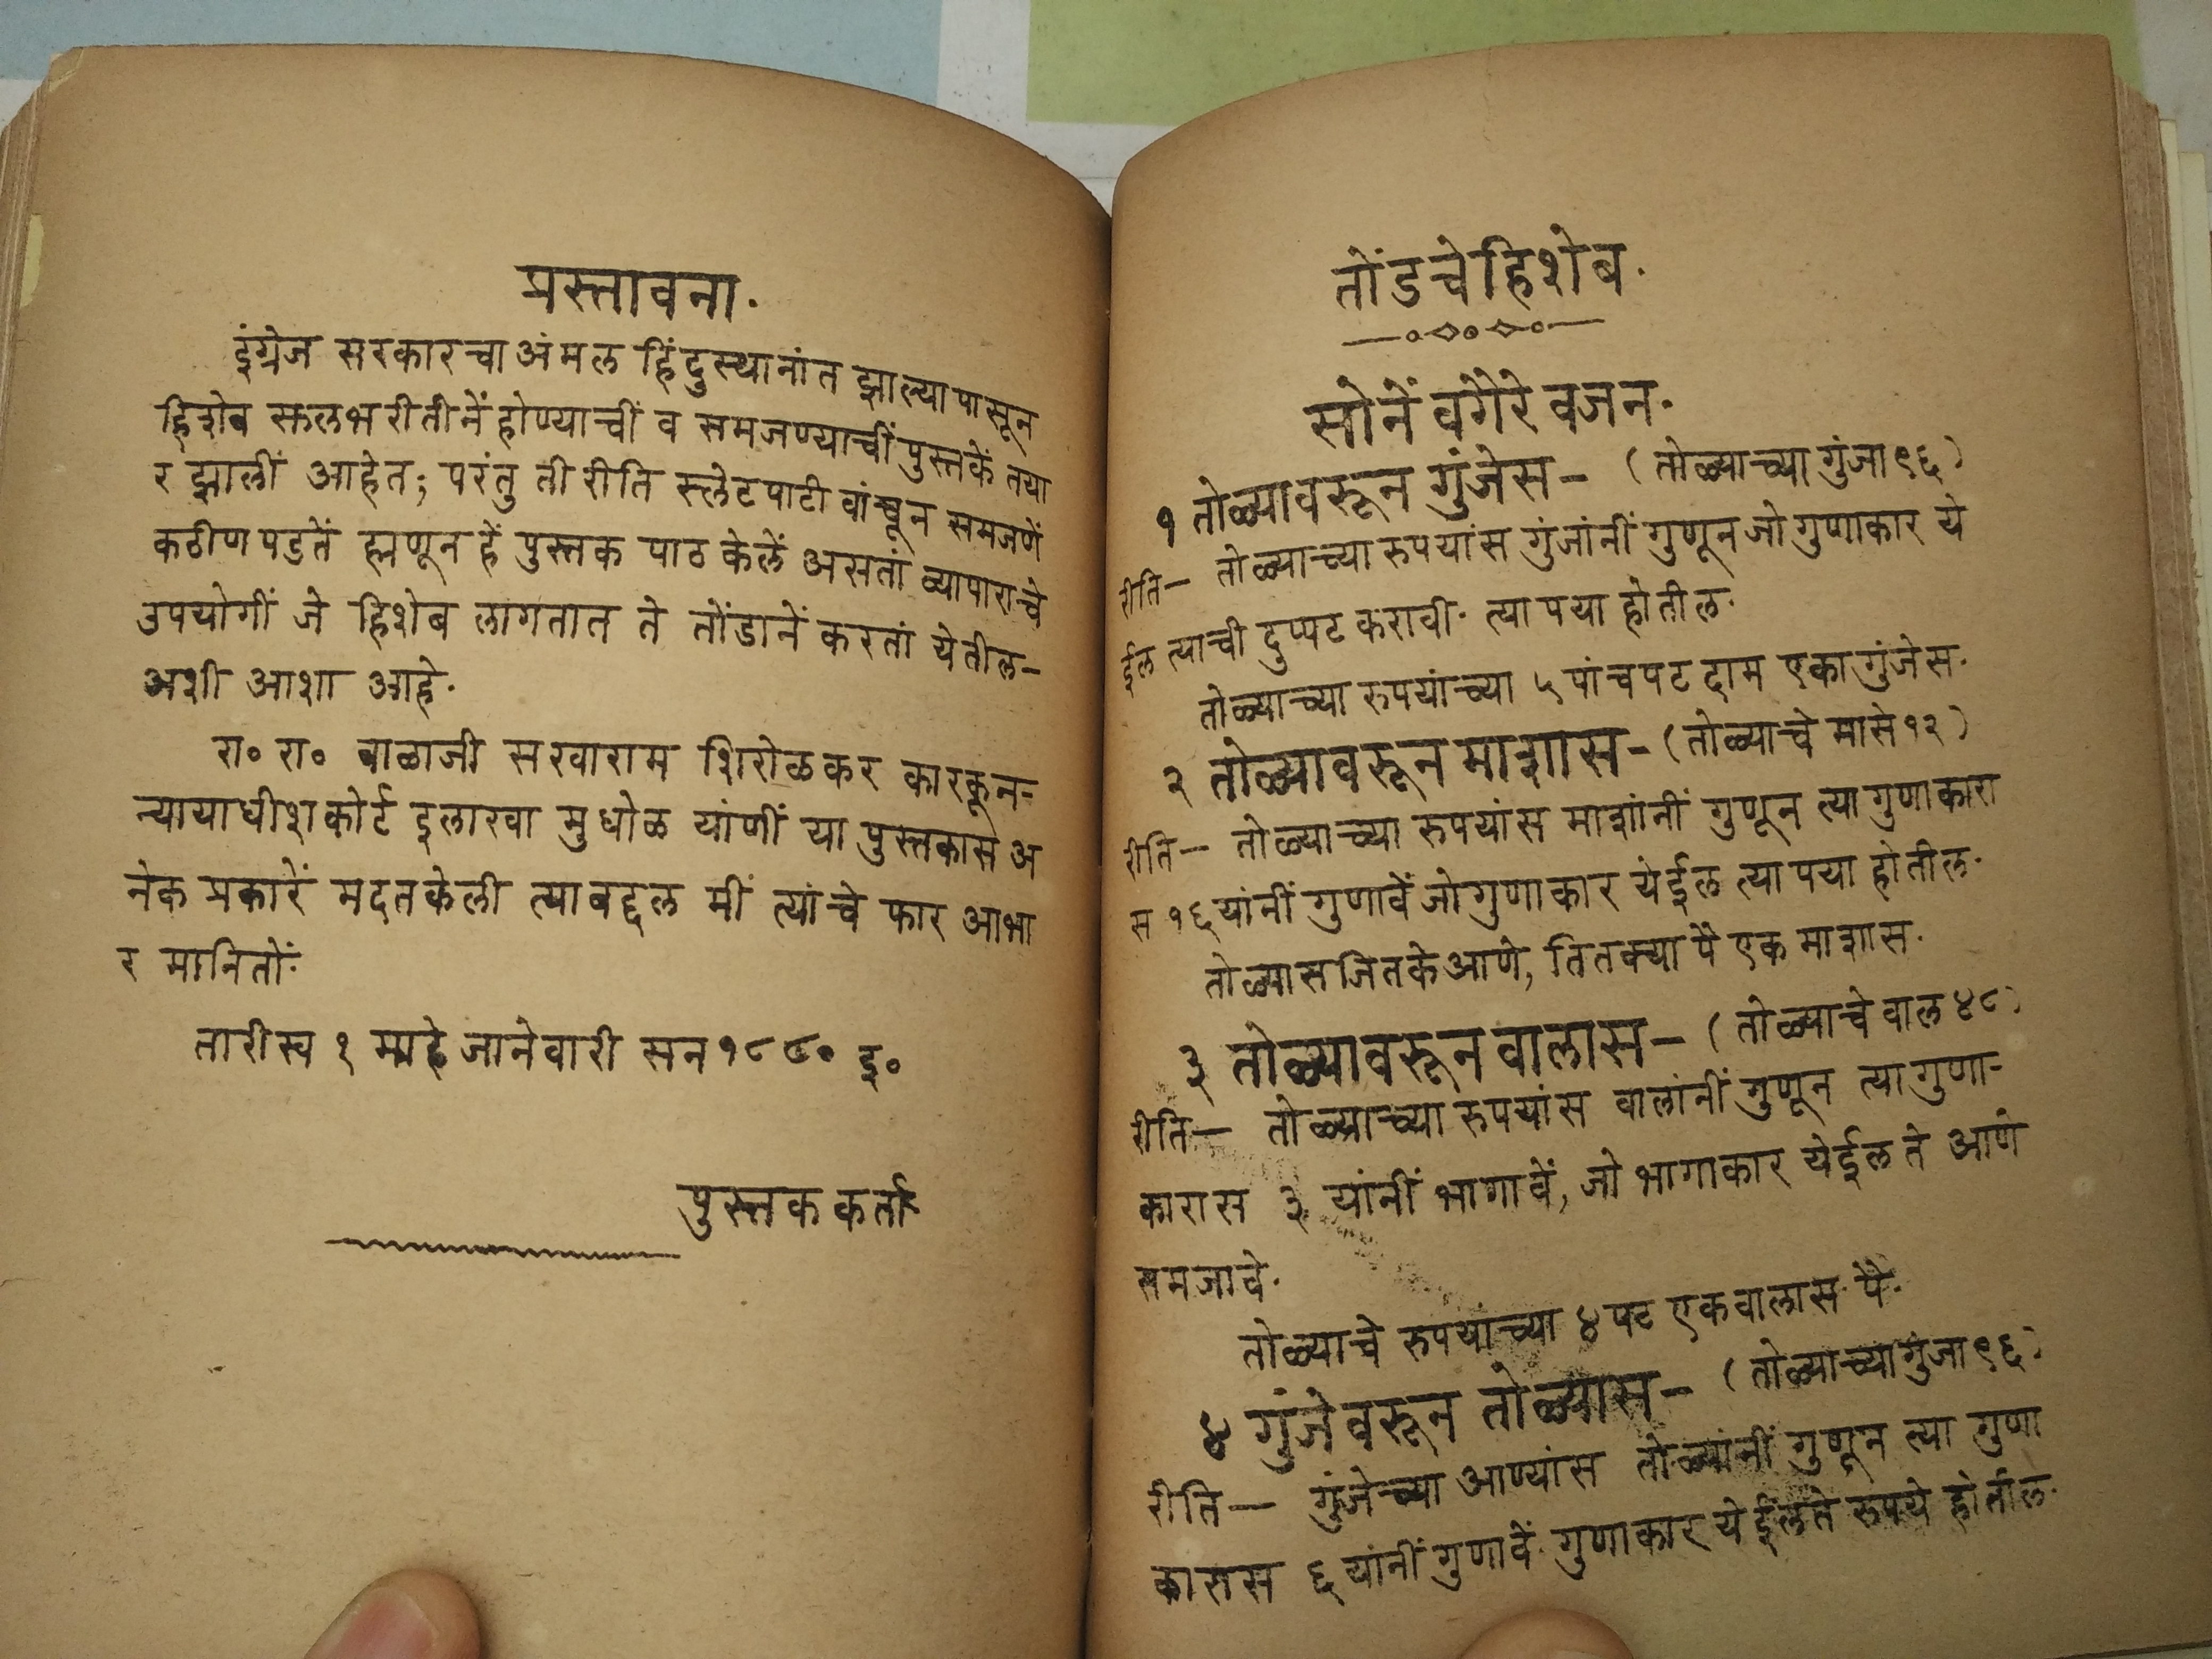 प्रस्तावना.
इंग्रेज सरकारचा अंमल हिंदुस्थानांत झाल्यापासून
हिशेब सुलभरीतीनें होण्याचीं व समजण्याचीं पुस्तकें तया
र झालीं आहेत; परंतु ती रीति स्लेटपाटी वांचून समजणें
कठीण पडतें ह्मणून हें पुस्तक पाठ केलें असतां व्यापाराचे
उपयोगीं जे हिशेब लागतात ते तोंडानें करतां येतील-
अशी आशा आहे.
रा० रा० बाळाजी सखाराम शिरोळकर कारकून-
न्यायाधीश कोर्ट इलाखा मुधोळ यांणीं या पुस्तकास अ
नेक प्रकारें मदत केली त्याबद्दल मीं त्यांचे फार आभा
र मानितों.
तारीख १ माहे जानेवारी सन १८८० इ०
पुस्तक कर्ता
तोंडचे हिशेब.
सोनें वगैरे वजन.
१ तोळ्यावरून गुंजेस- (तोळ्याच्या गुंजा ९६)
रीति- तोळ्याच्या रुपयांस गुंजांनीं गुणून जो गुणाकार ये
ईल त्याची दुप्पट करावी. त्या पया होतील.
तोळ्याच्या रुपयांच्या ५ पांचपट दाम एका गुंजेस.
२ तोळ्यावरून माशास- (तोळ्याचे मासे १२)
रीति- तोळ्याच्या रुपयांस माशांनीं गुणून त्या गुणाकारा
स १६ यांनीं गुणावें जो गुणाकार येईल त्या पया होतील.
तोळ्यास जितके आणे, तितक्या पै एक माशास.
३ तोळ्यावरून वालास- (तोळ्याचे वाल ४८)
रीति- तोळ्याच्या रुपयांस वालांनीं गुणून त्या गुणा-
कारास ३ यांनीं भागावें, जो भागाकार येईल ते आणे
समजावे.
तोळ्याचे रुपयांच्या ४ पट एक वालास पै.
४ गुंजेवरून तोळ्यास- (तोळ्याच्या गुंजा ९६)
रीति- गुंजेच्या आण्यांस तोळ्यांनीं गुणून त्या गुणा
कारास ६ यांनीं गुणावें. गुणाकार येईल ते रुपये होतील.